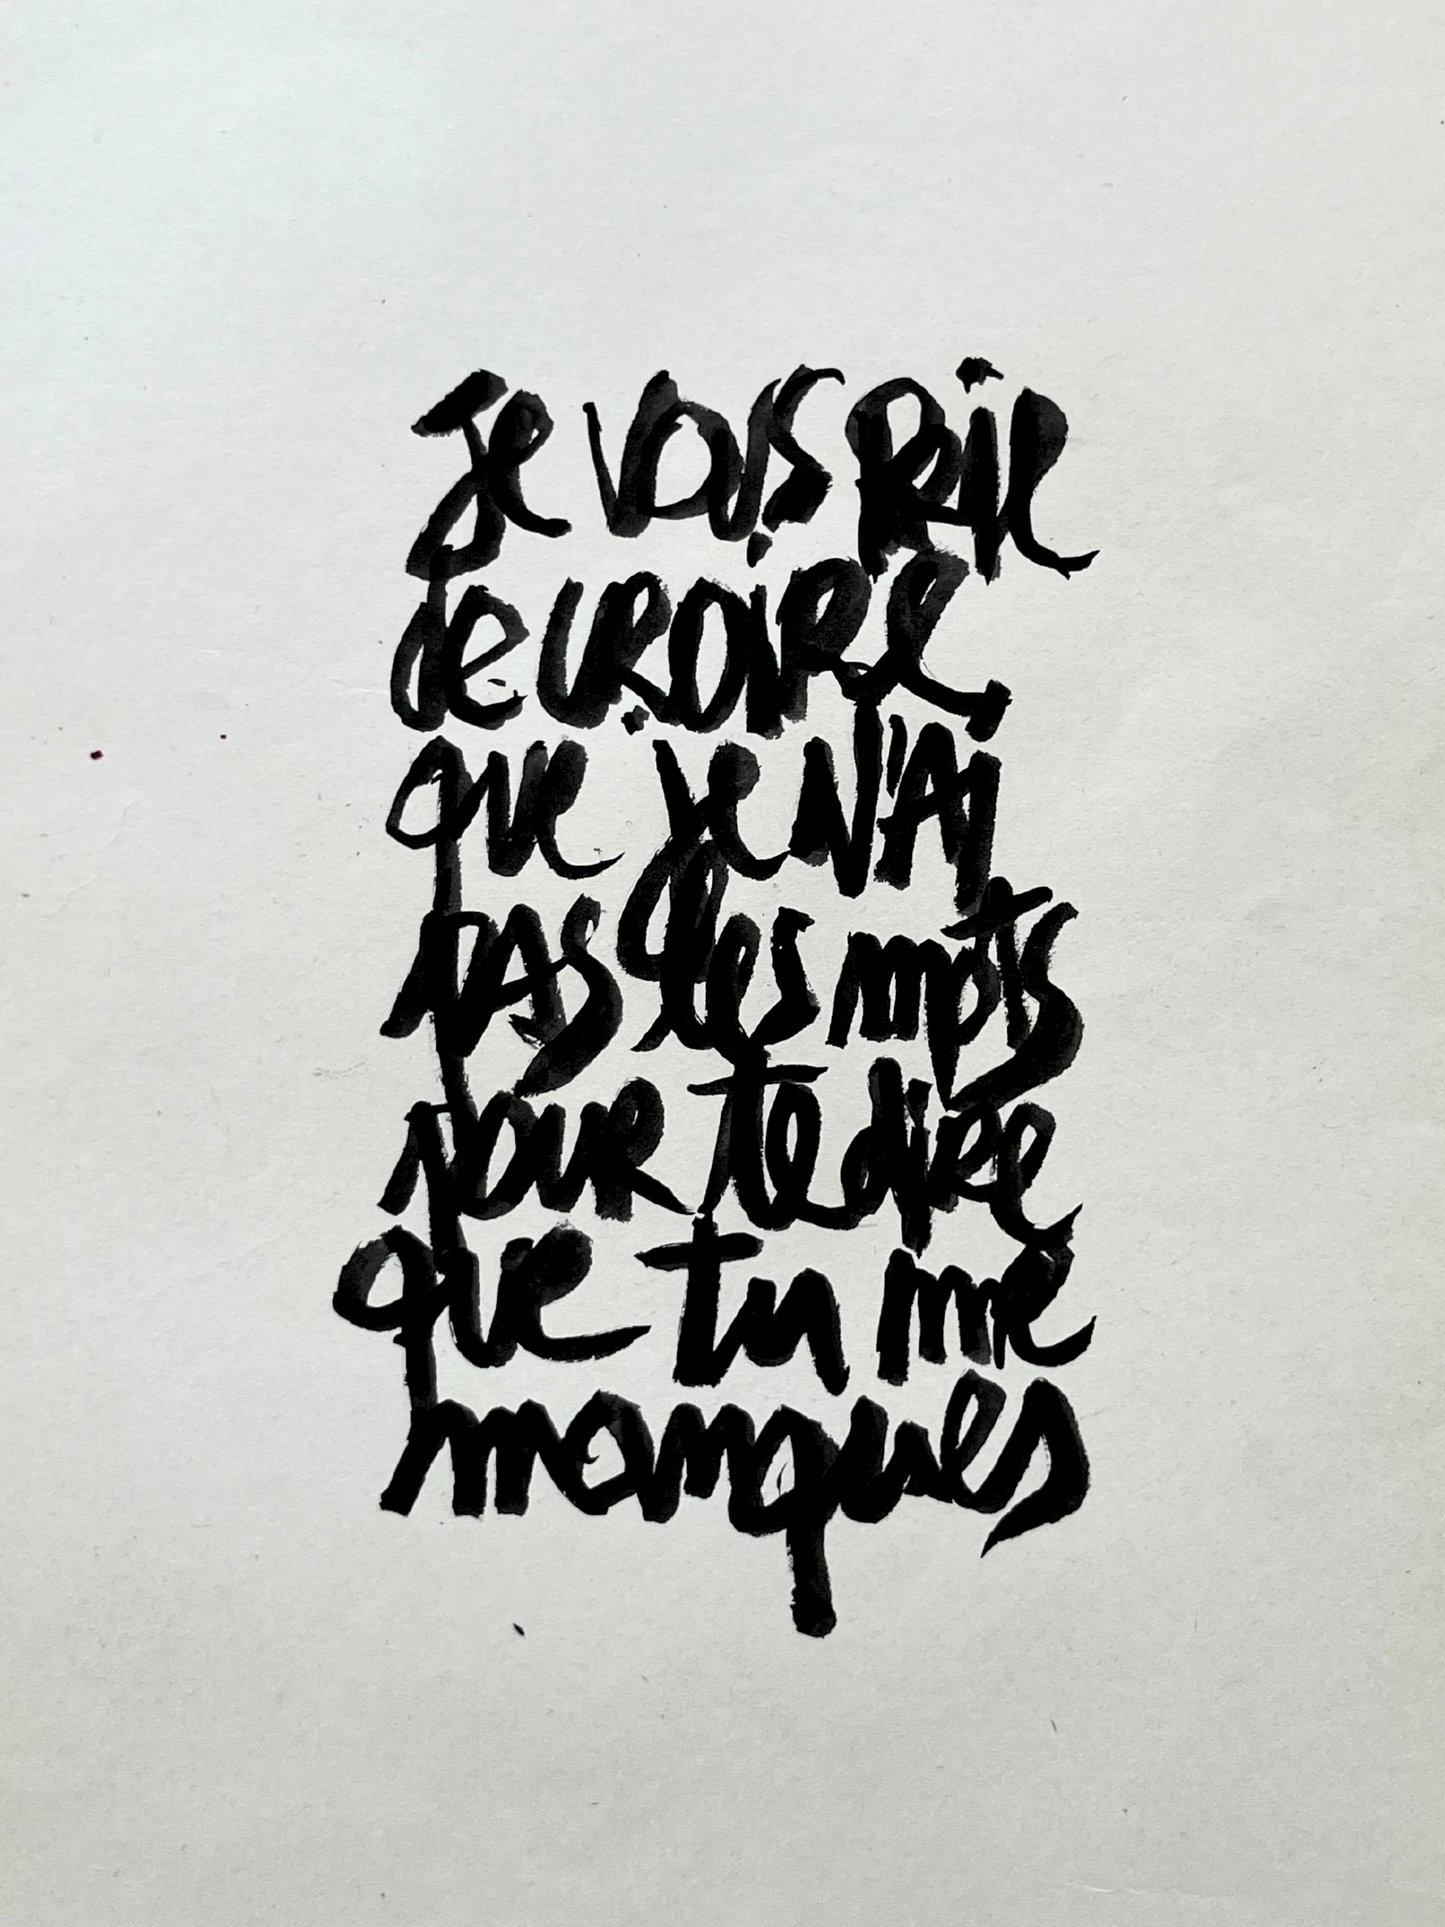 Je vous prie
de croire
que je n'ai
pas les mots
pour te dire
que tu me
manques